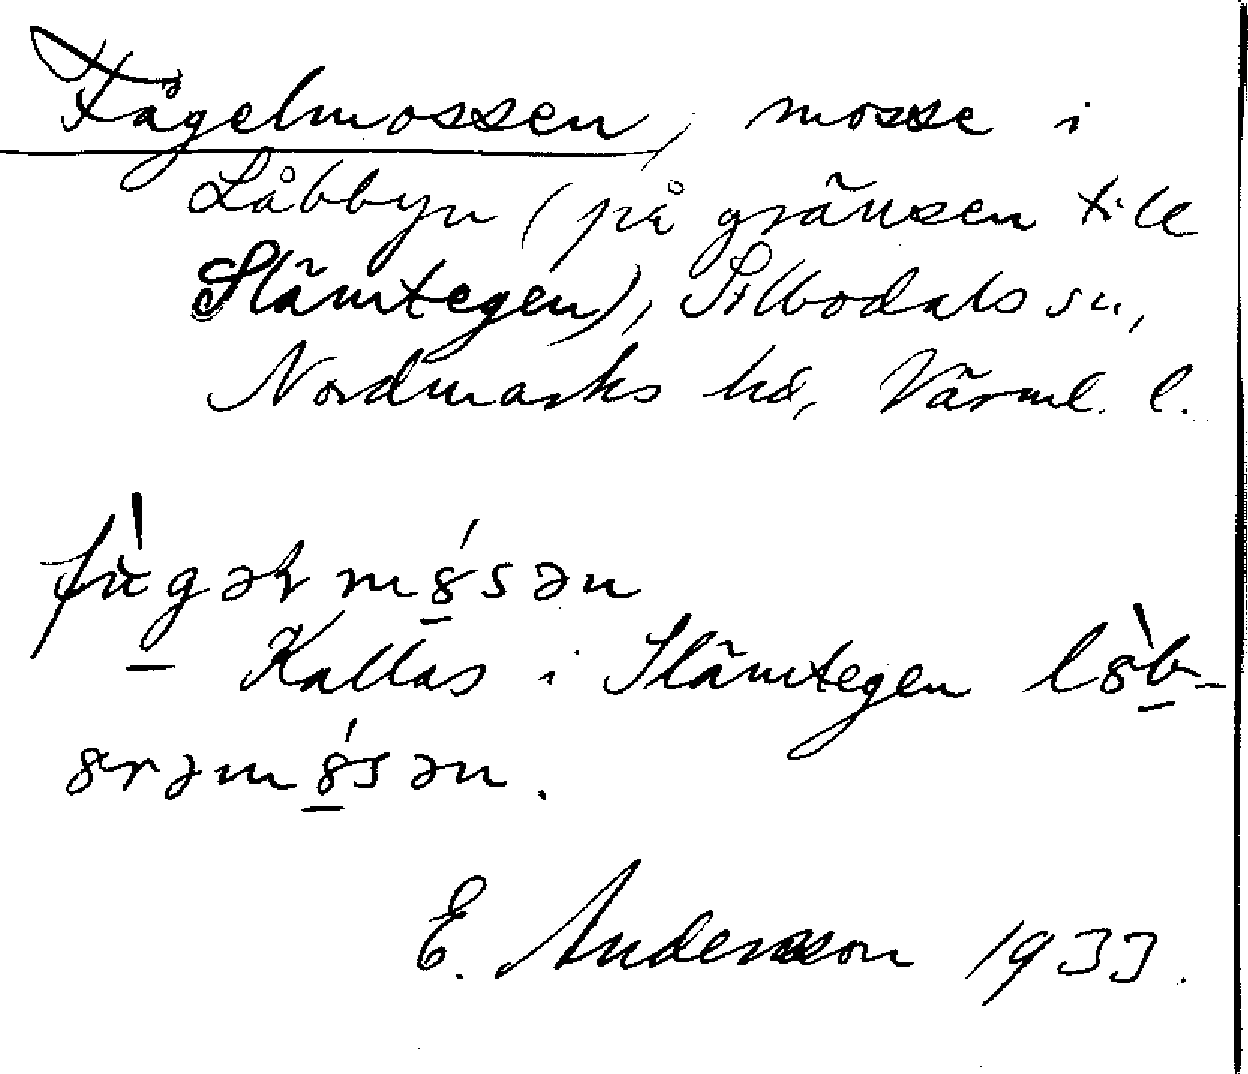 Fågelmossen, mosse i
Låbbyn (på gränsen till
Slämtegen), Silbodals sn,
Nordmarks hd, Värml. l.
Kallas i Slämtegen
E. Andersson 1933.